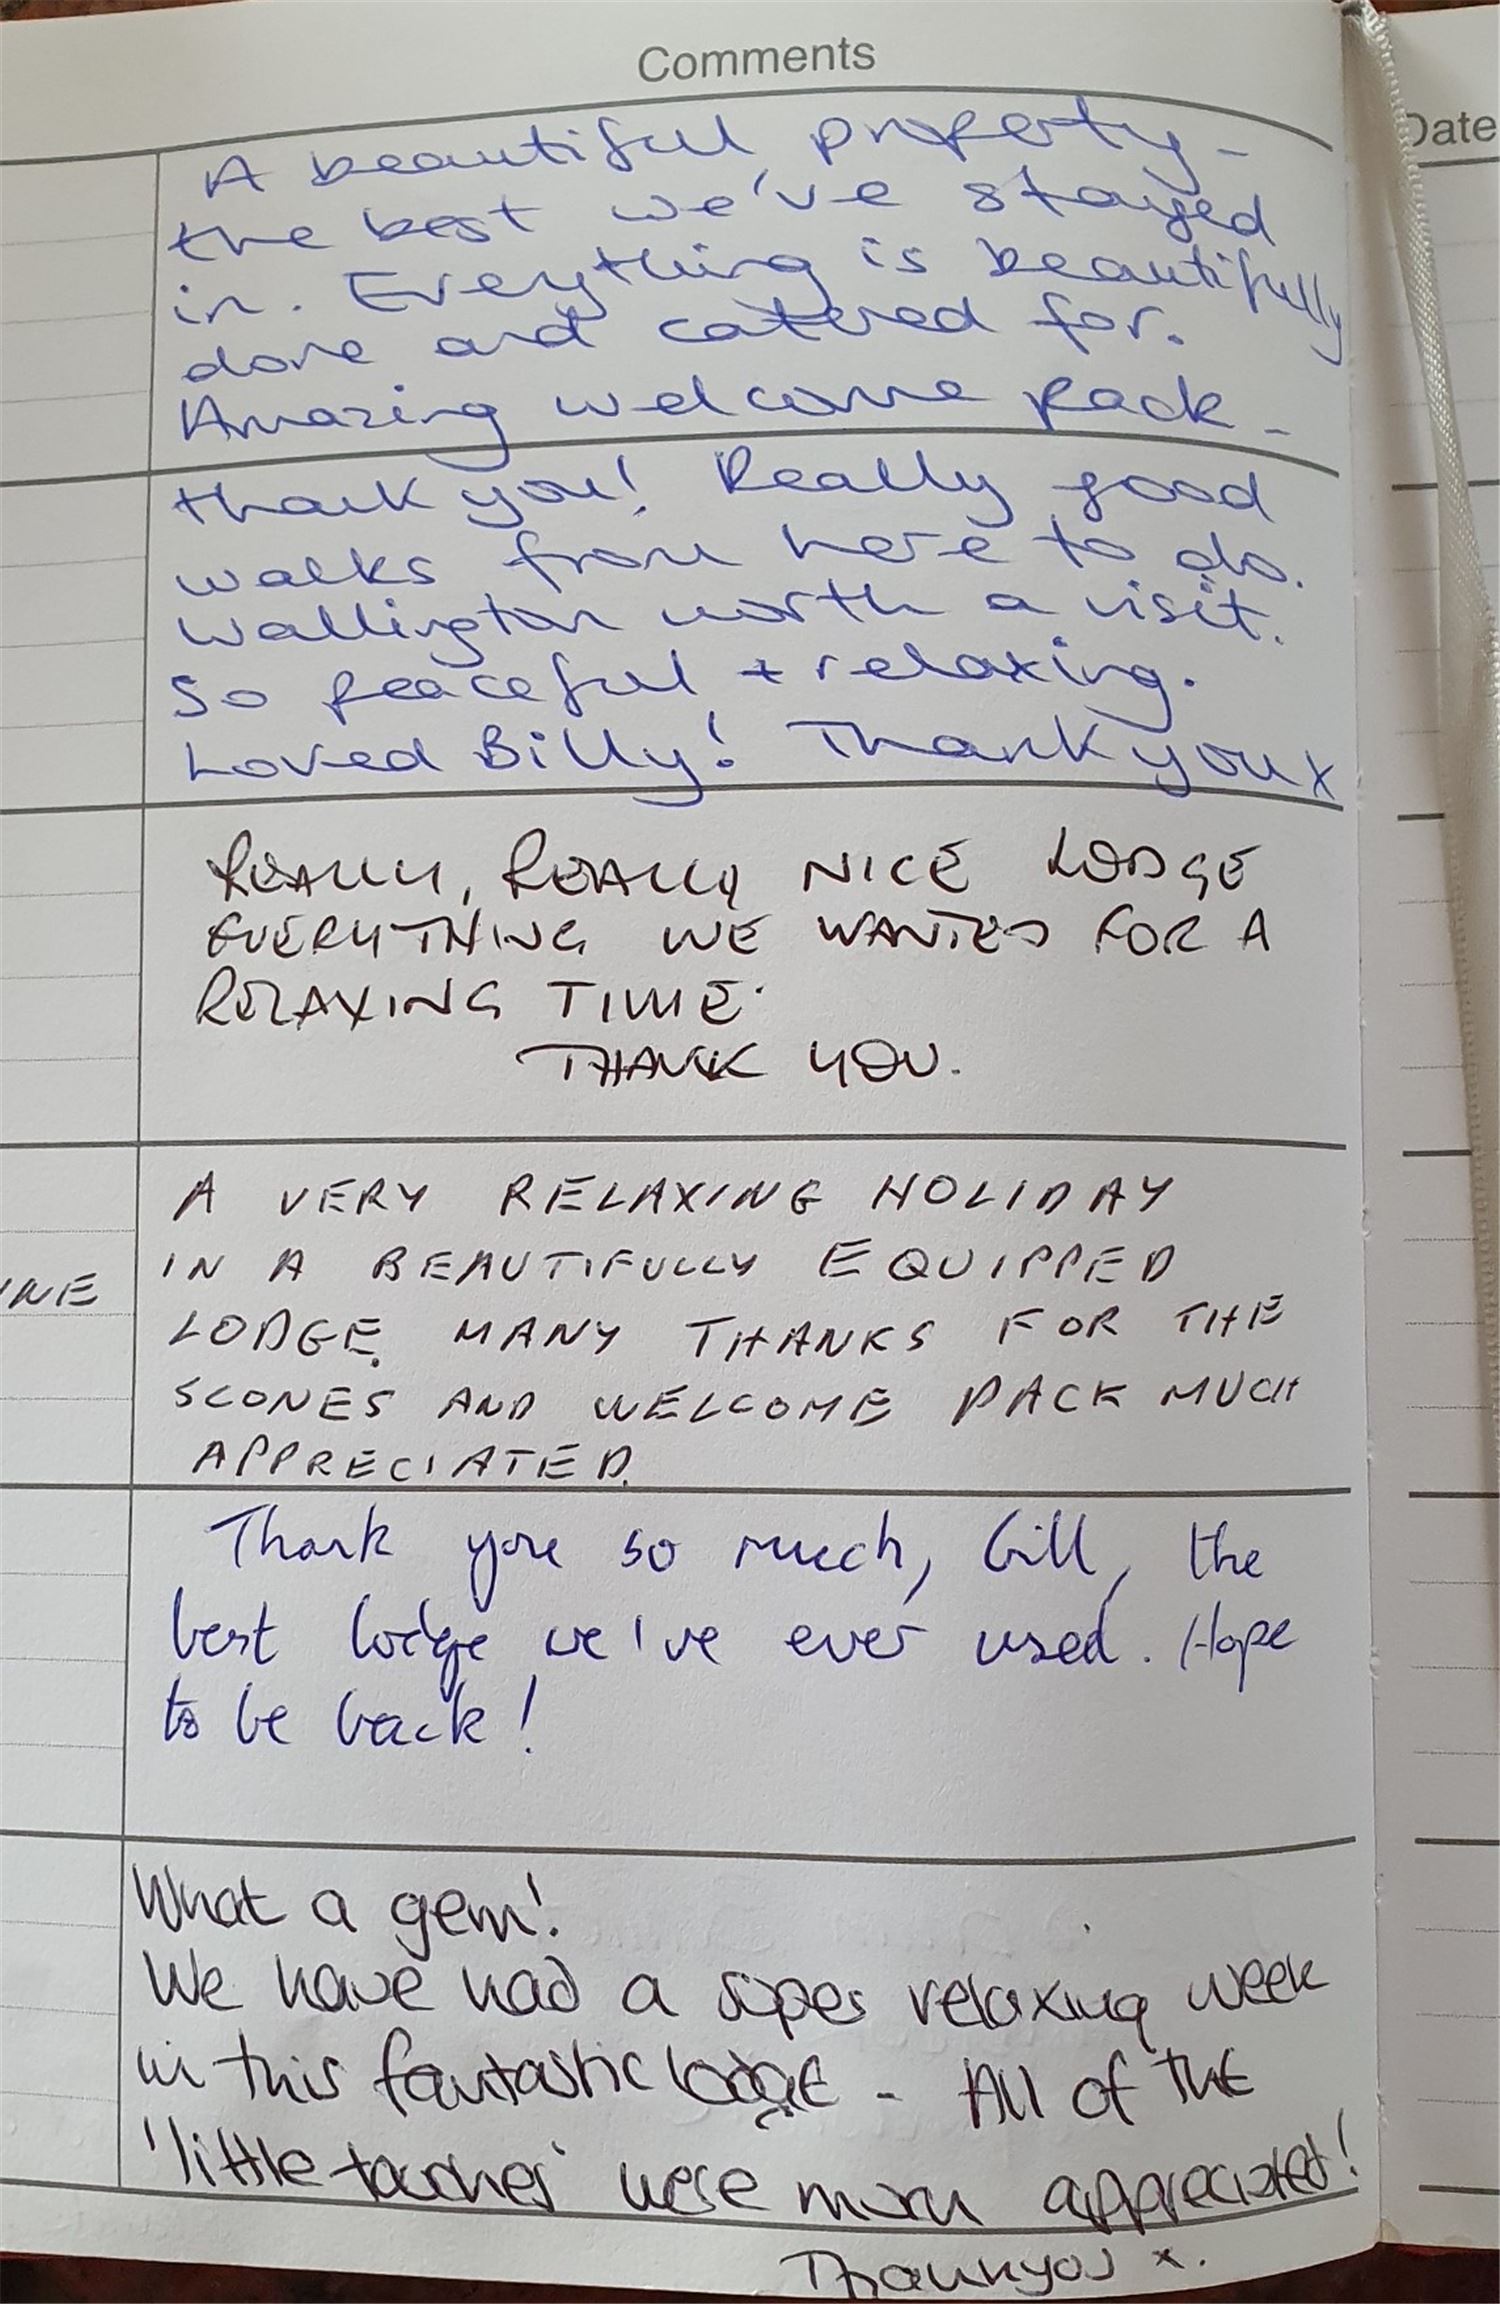 Comments
Date
A beautiful property -
the best we've stayed
in. Everything is beautifully
done and catered for.
Amazing welcome pack -
thank you! Really good
walks from here to do.
Wallington worth a visit.
So peaceful + relaxing.
Loved Billy! Thank you x
REALLY, REALLY NICE LODGE
EVERYTHING WE WANTED FOR A
RELAXING TIME.
THANK YOU.
A VERY RELAXING HOLIDAY
IN A BEAUTIFULLY EQUIPPED
INE
LODGE. MANY THANKS FOR THE
SCONES AND WELCOME PACK MUCH
APPRECIATED.
Thank you so much, Gill, the
best lodge we've ever used. Hope
to be back!
What a gem!
We have had a super relaxing week
in this fantastic lodge - All of the
'little touches' were much appreciated!
Thankyou x.